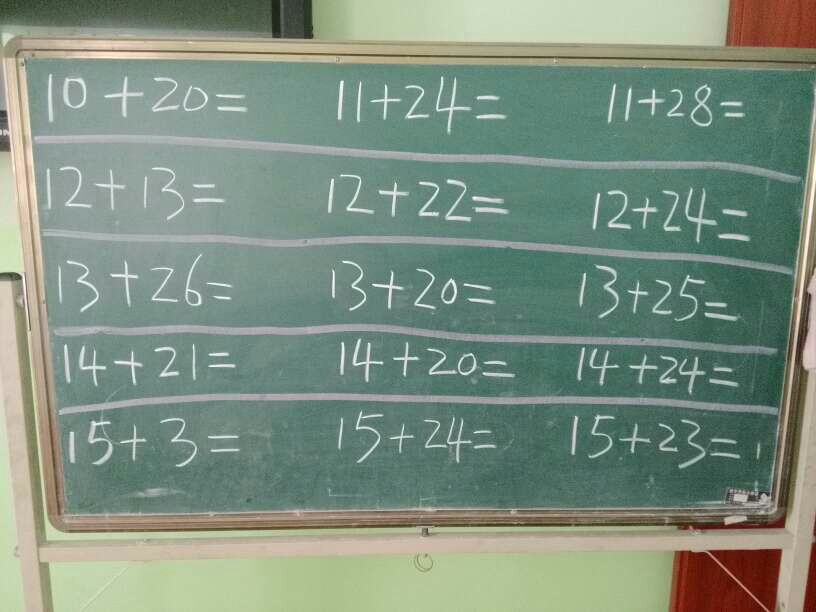 10+20= 11+24= 11+28=
12+13= 12+22= 12+24=
13+26= 13+20= 13+25=
14+21= 14+20= 14+24=
15+3= 15+24= 15+23=